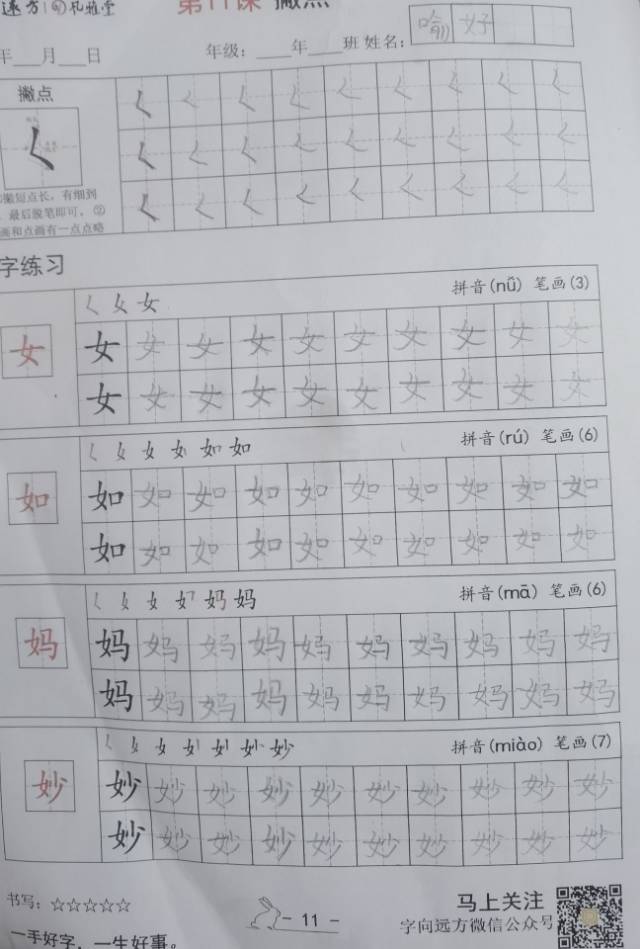 远方 礼雅堂 第11课 撇点
年___月___日 年级：____年____班 姓名： 喻 好
撇点
𡿨 𡿨 𡿨 𡿨 𡿨 𡿨 𡿨 𡿨 𡿨
𡿨 𡿨 𡿨 𡿨 𡿨 𡿨 𡿨 𡿨 𡿨 𡿨
𡿨 𡿨 𡿨 𡿨 𡿨 𡿨 𡿨 𡿨 𡿨
撇短点长，有细到
最后驻笔即可。②
画和点画有一点点略
字练习
拼音(nǚ) 笔画(3)
女 女 女 女 女 女 女 女 女 女 女
女 女 女 女 女 女 女 女 女 女
拼音(rú) 笔画(6)
如 如 如 如 如 如 如 如 如 如 如
如 如 如 如 如 如 如 如 如 如
拼音(mā) 笔画(6)
妈 妈 妈 妈 妈 妈 妈 妈 妈 妈 妈
妈 妈 妈 妈 妈 妈 妈 妈 妈 妈
拼音(miào) 笔画(7)
妙 妙 妙 妙 妙 妙 妙 妙 妙 妙 妙
妙 妙 妙 妙 妙 妙 妙 妙 妙 妙
书写：☆☆☆☆☆
一手好字，一生好事。
- 11 -
马上关注
字向远方微信公众号